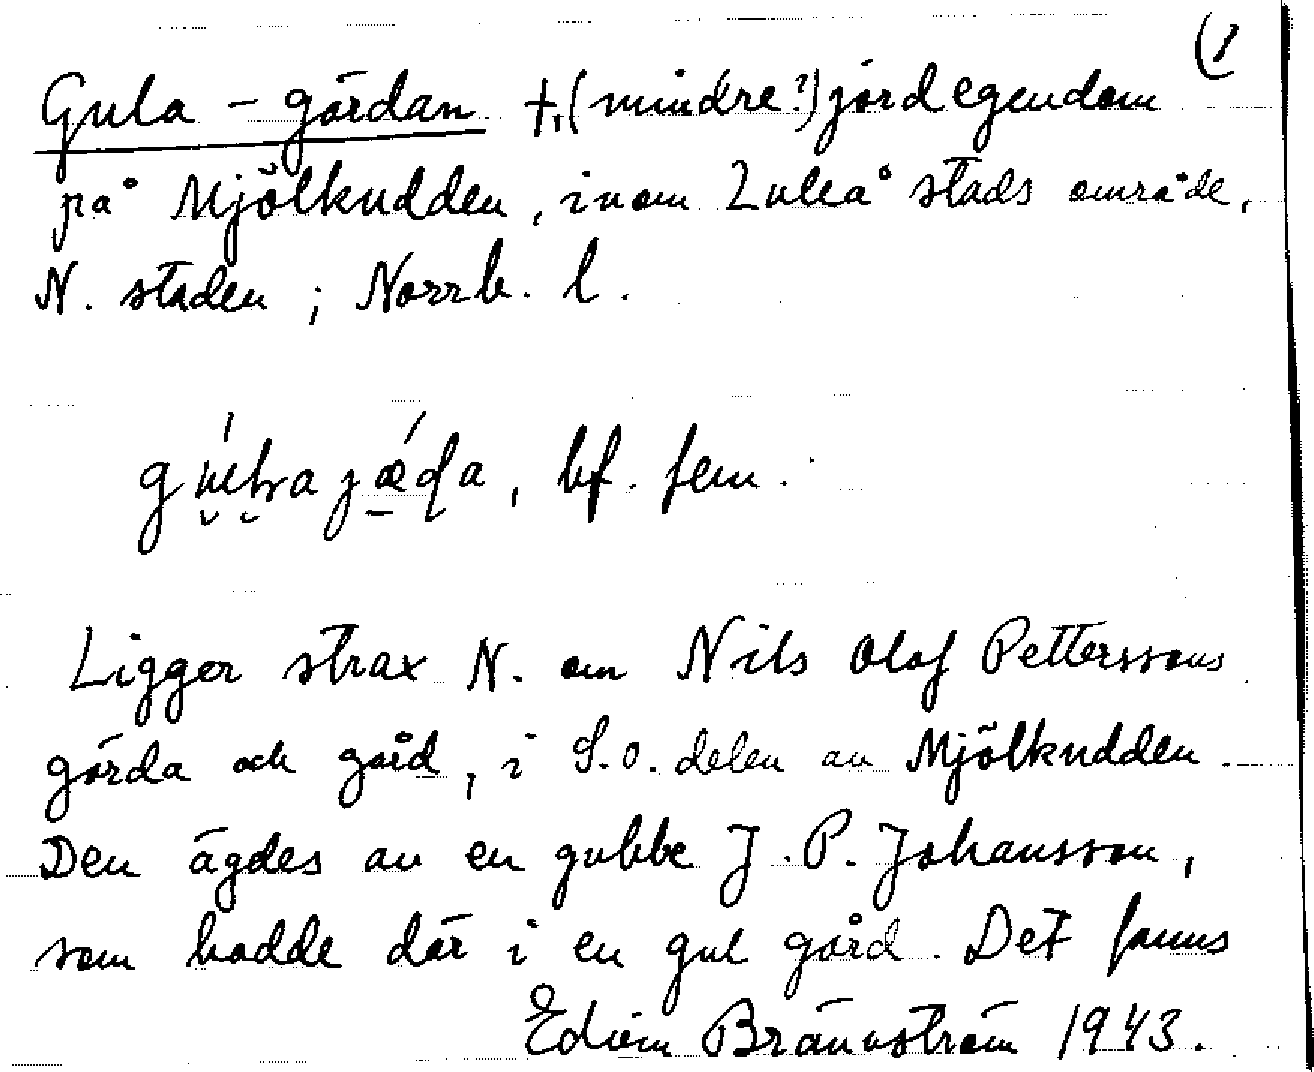 (1
Gula-gärdan †, (mindre?) jordegendom
på Mjölkudden, inom Luleå stads område,
N. staden; Norrb. l.
bf. fem.
Ligger strax N. om Nils Olof Petterssons
gärda och gård, i S.O. delen av Mjölkudden.
Den ägdes av en gubbe J. P. Johansson,
som bodde där i en gul gård. Det fanns
Edvin Brännström 1943.